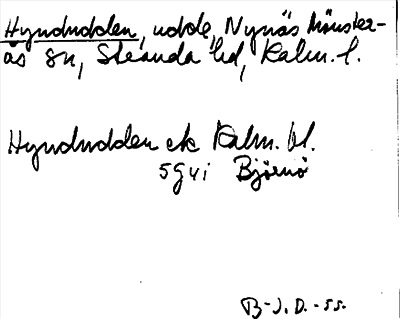 Hyndudden, udde, Nynäs Mönster-
ås sn, Stranda hd, Kalm. l.
Hyndudden ek Kalm. bl.
5g4i Björnö
B-J. D. -55.